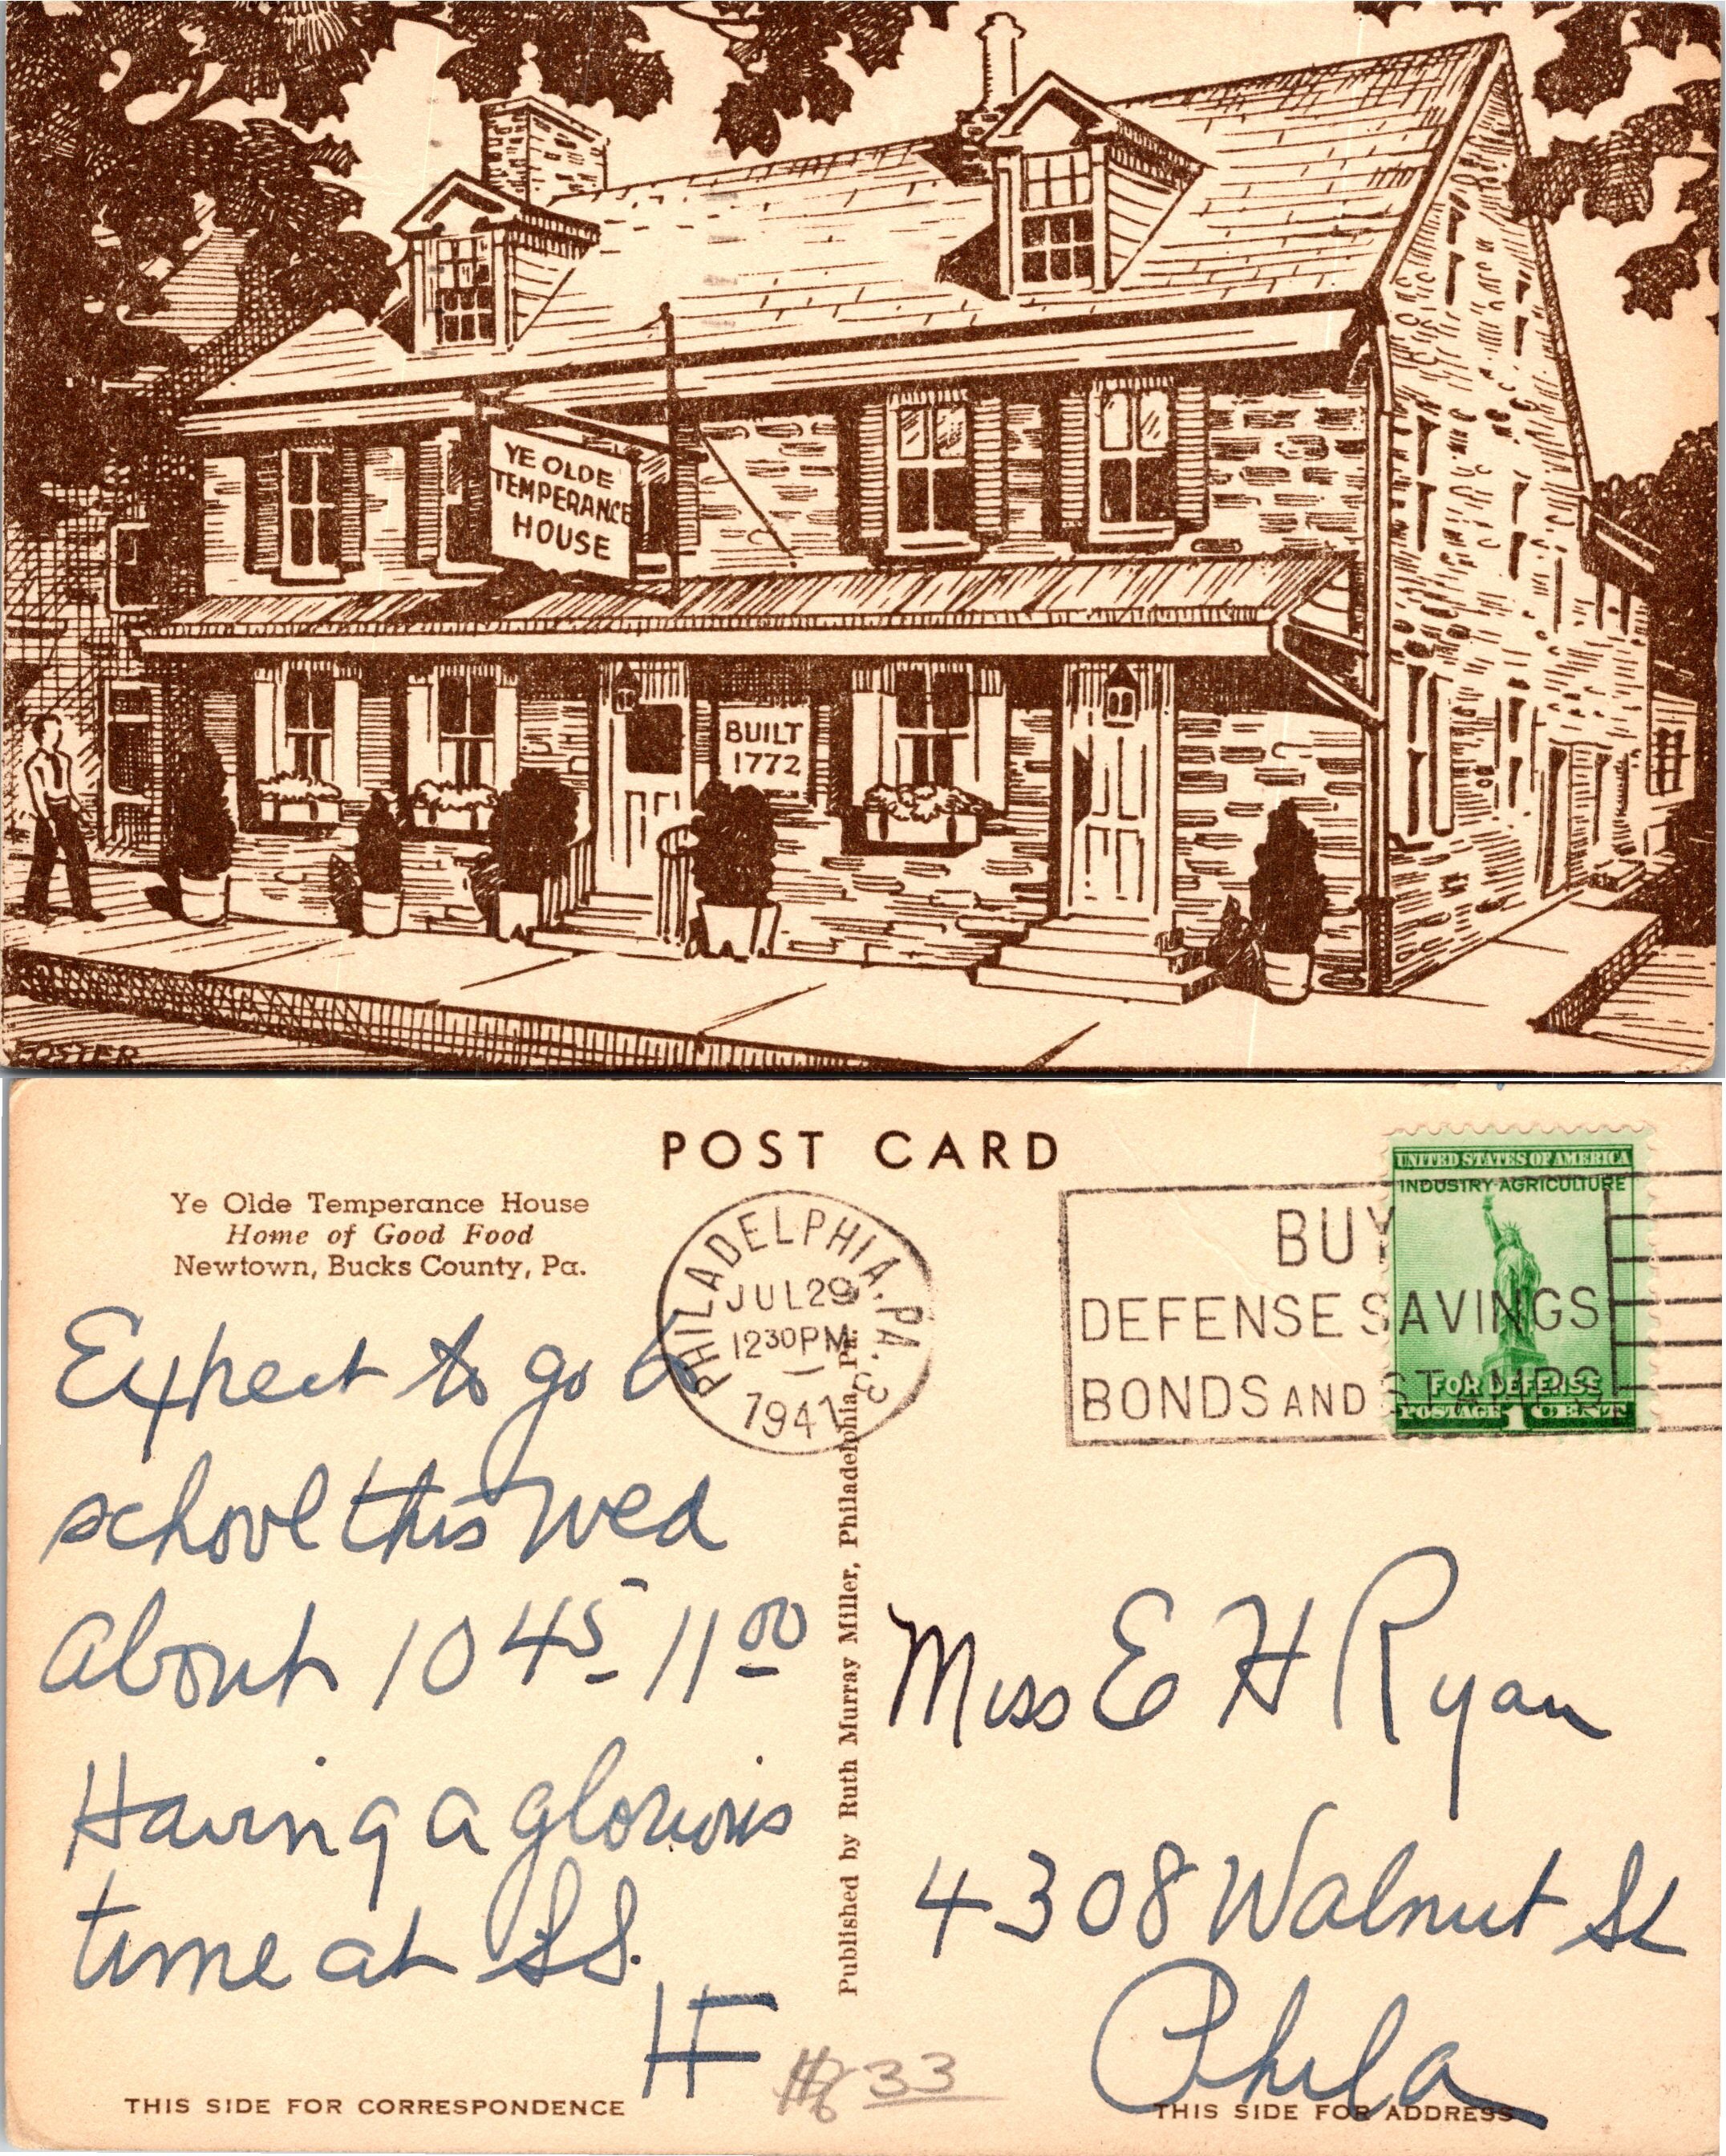 YE OLDE
TEMPERANCE
HOUSE
BUILT
1772
FOSTER
POST CARD
Ye Olde Temperance House
Home of Good Food
Newtown, Bucks County, Pa.
PHILADELPHIA, PA. 3
JUL 29
12 30 PM
1941
BUY
DEFENSE SAVINGS
BONDS AND STAMPS
UNITED STATES OF AMERICA
INDUSTRY AGRICULTURE
FOR DEFENSE
POSTAGE 1 CENT
Expect to go to
school this Wed
about 10 45 - 11 00
Having a glorious
time at SS.
HF
Published by Ruth Murray Miller, Philadelphia, Pa.
Miss E H Ryan
4308 Walnut St
Phila
33
THIS SIDE FOR CORRESPONDENCE
THIS SIDE FOR ADDRESS